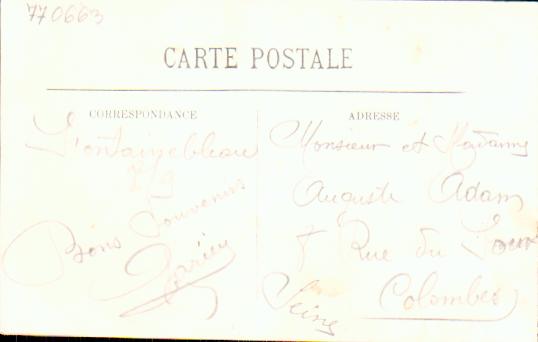 770663
CARTE POSTALE
CORRESPONDANCE
Fontainebleau
Bons Souvenirs
ADRESSE
Monsieur et Madame
Auguste Adam
8 Rue du
Colombes
Seine